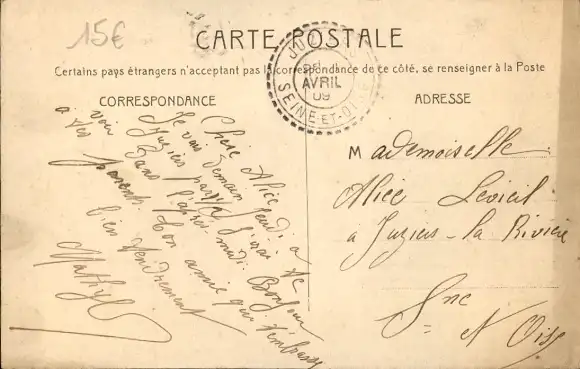 15€
CARTE POSTALE
Certains pays étrangers n'acceptant pas la correspondance de ce côté, se renseigner à la Poste
CORRESPONDANCE
ADRESSE
JUZ
AVRIL
09
SEINE-ET-OISE
Chère Alice
Je vais demain jeudi à
Juziers j'irai te
voir dans l'après-midi Bonjour
à tes parents Ton amie qui t'embrasse
bien tendrement
Mathyl
Mademoiselle
Alice Levieil
à Juziers-la Rivière
Sne
et Oise